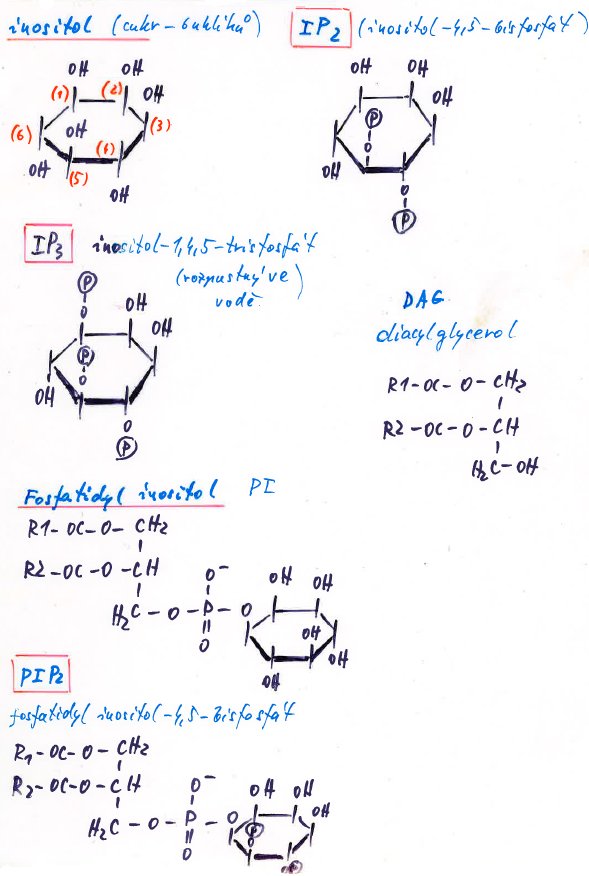 inositol (cukr - 6 uhlíků)
OH OH
(1) (2) OH
(6) OH (3)
(4)
OH (5)
OH
IP2 (inositol-4,5-bisfosfát)
OH OH
OH
P
O
OH
O
P
IP3 inositol-1,4,5-trisfosfát
(rozpustný ve
vodě)
P
O OH
OH
P
O
OH
O
P
DAG
diacylglycerol
R1-OC-O-CH2
R2-OC-O-CH
H2C-OH
Fosfatidyl inositol PI
R1-OC-O-CH2
R2-OC-O-CH
O- OH OH
H2C-O-P-O
OH
O OH
OH
PIP2
fosfatidyl inositol-4,5-bisfosfát
R1-OC-O-CH2
R2-OC-O-CH
O- OH OH
OH
H2C-O-P-O
P
O
O
P